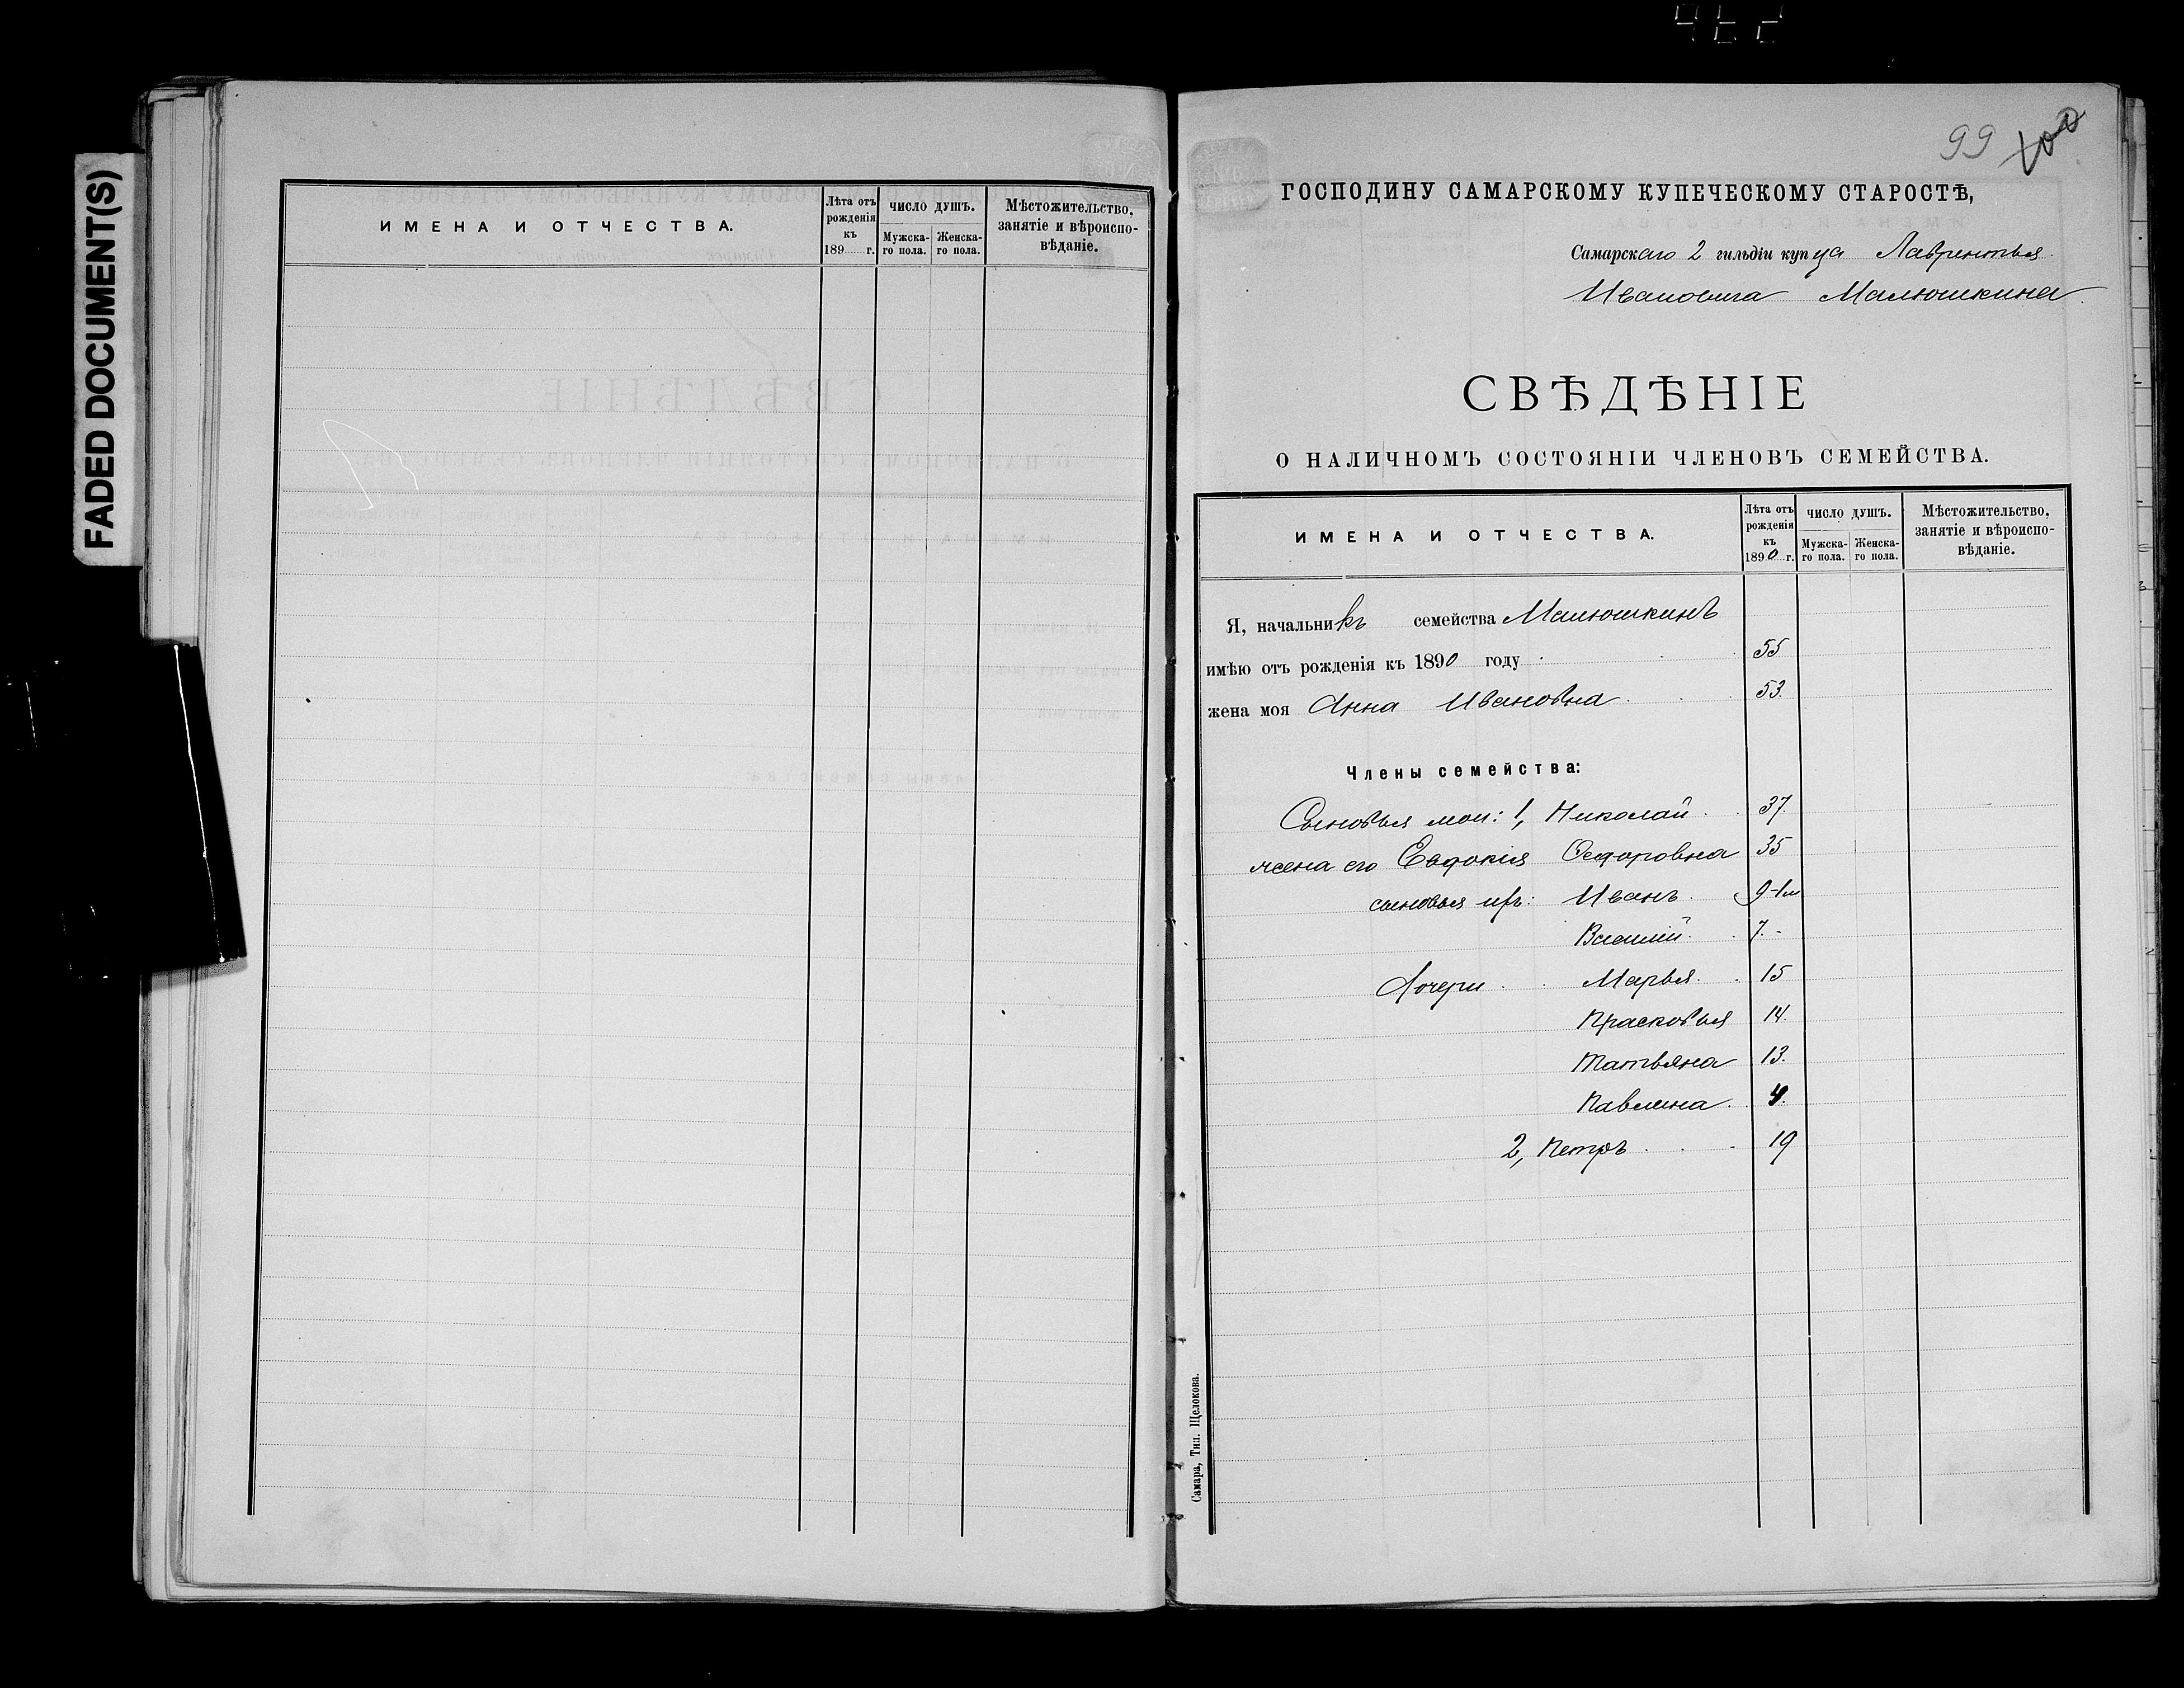 FADED DOCUMENT(S)
ИМЕНА И ОТЧЕСТВА.
Лѣта отъ рожденія къ 189 г.
ЧИСЛО ДУШЪ.
Мужска-го пола.
Женска-го пола.
Мѣстожительство, занятіе и вѣроиспо-вѣданіе.
99 100
ГОСПОДИНУ САМАРСКОМУ КУПЕЧЕСКОМУ СТАРОСТѢ,
Самарскаго 2 гильдіи купца Лаврентья
Ивановича Малюшкина
СВѢДѢНІЕ
О НАЛИЧНОМЪ СОСТОЯНІИ ЧЛЕНОВЪ СЕМЕЙСТВА.
ИМЕНА И ОТЧЕСТВА.
Лѣта отъ рожденія къ 1890 г.
ЧИСЛО ДУШЪ.
Мужска-го пола.
Женска-го пола.
Мѣстожительство, занятіе и вѣроиспо-вѣданіе.
Я, начальникъ семейства Малюшкинъ
имѣю отъ рожденія къ 1890 году 55
жена моя Анна Ивановна 53.
Члены семейства:
Сыновья мои: 1, Николай 37.
жена его Евдокия Федоровна 35
сыновья ихъ: Иванъ 9
Василий 7.-
Дочери Марья 15
Прасковья 14.
Татьяна 13.
Павлина 4.
2, Петръ 19
Самара, Тип. Щелокова.